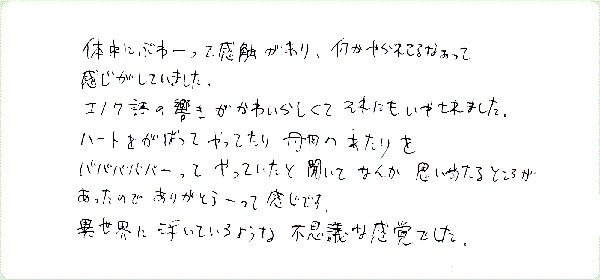 体中にぶわーって感触があり、何かやられてるなぁって
感じがしていました。
エノク語の響きがかわいらしくてそれにもいやされました。
ハートをがばってやってたり 丹田のあたりを
ババババババーって やっていたと聞いて なんか 思いあたるところが
あったので ありがとうーって感じです。
異世界に浮いているような 不思議な感覚でした。